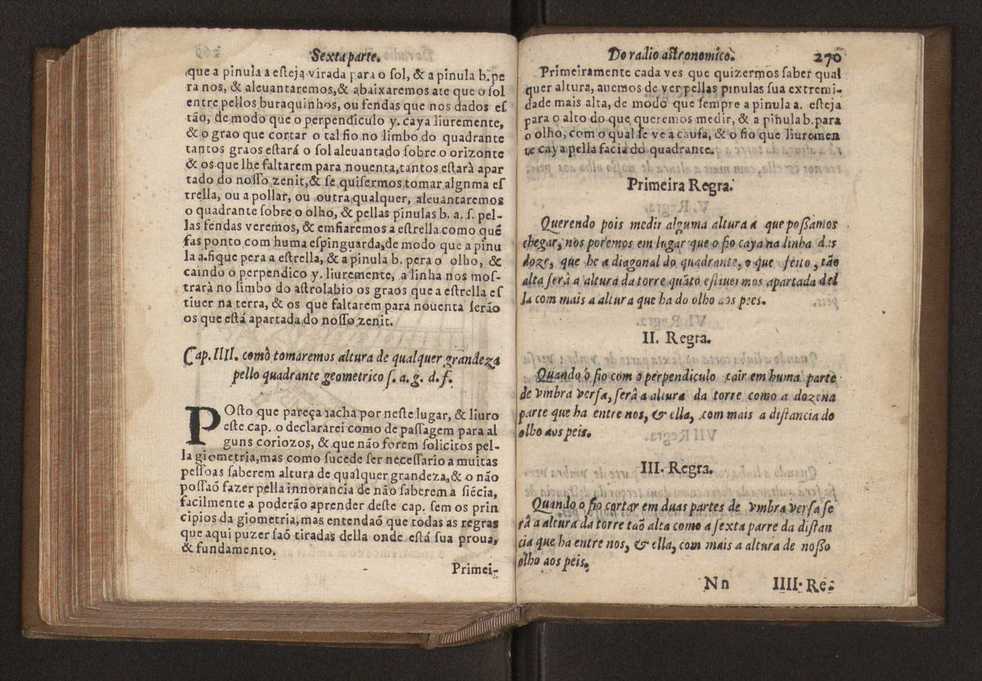 Sexta parte.
que a pinula a esteja virada para o sol, & a pinula b. pe
ra nos, & aleuantaremos, & abaixaremos ate que o sol
entre pellos buraquinhos, ou fendas que nos dados es
tão, de modo que o perpendiculo y. caya liuremente,
& o grao que cortar o tal fio no limbo do quadrante
tantos graos estará o sol aleuantado sobre o orizonte
& os que lhe faltarem para nouenta, tantos estarà apar
tado do nosso zenit, & se quisermos tomar algnma es
trella, ou a pollar, ou outra qualquer, aleuantaremos
o quadrante sobre o olho, & pellas pinulas b. a. s. pel-
las fendas veremos, & emfiaremos a estrella como quẽ
fas ponto com huma espinguarda, de modo que a pinu
la a. fique pera a estrella, & a pinula b. pera o olho, &
caindo o perpendico y. liuremente, a linha nos mos-
trarà no limbo do astrolabio os graos que a estrella es
tiuer na terra, & os que faltarem para nouenta serão
os que està apartada do nosso zenit.
Cap. IIII. como tomaremos altura de qualquer grandeza
pello quadrante geometrico s. a. g. d. f.
POsto que pareça tacha por neste lugar, & liuro
este cap. o declararei como de passagem para al
guns coriozos, & que não forem solicitos pel-
la giometria, mas como sucede ser necessario a muitas
pessoas saberem altura de qualquer grandeza, & o não
possaõ fazer pella innorancia de não saberem a siẽcia,
facilmente a poderão aprender deste cap. sem os prin
cipios da giometria, mas entendaõ que todas as regras
que aqui puzer saõ tiradas della onde está sua proua,
& fundamento.
Primei-
Do radio astronomico. 270
Primeiramente cada ves que quizermos saber qual
quer altura, auemos de ver pellas pinulas sua extremi-
dade mais alta, de modo que sempre a pinula a. esteja
para o alto do que queremos medir, & a piñula b. para
o olho, com o qual se ve a causa, & o fio que liuromen
te caya pella facia do quadrante.
Primeira Regra.
Querendo pois medir alguma altura a que possamos
chegar, nos poremos em lugar que o fio caya na linha das
doze, que he a diagonal do quadrante, o que feito, tão
alta serâ a altura da torre quãto estiuermos apartada del
la com mais a altura que ha do olho aos pees.
II. Regra.
Quando o fio com o perpendiculo cair em huma parte
de vmbra versa, serâ a altura da torre como a dozena
parte que ha entre nos, & ella, com mais a distancia do
olho aos peis.
III. Regra.
Quando o fio cortar em duas partes de vmbra versa se
râ a altura da torre taõ alta como a sexta parre da distan
cia que ha entre nos, & ella, com mais a altura de nosso
olho aos peis.
Nn IIII. Re-